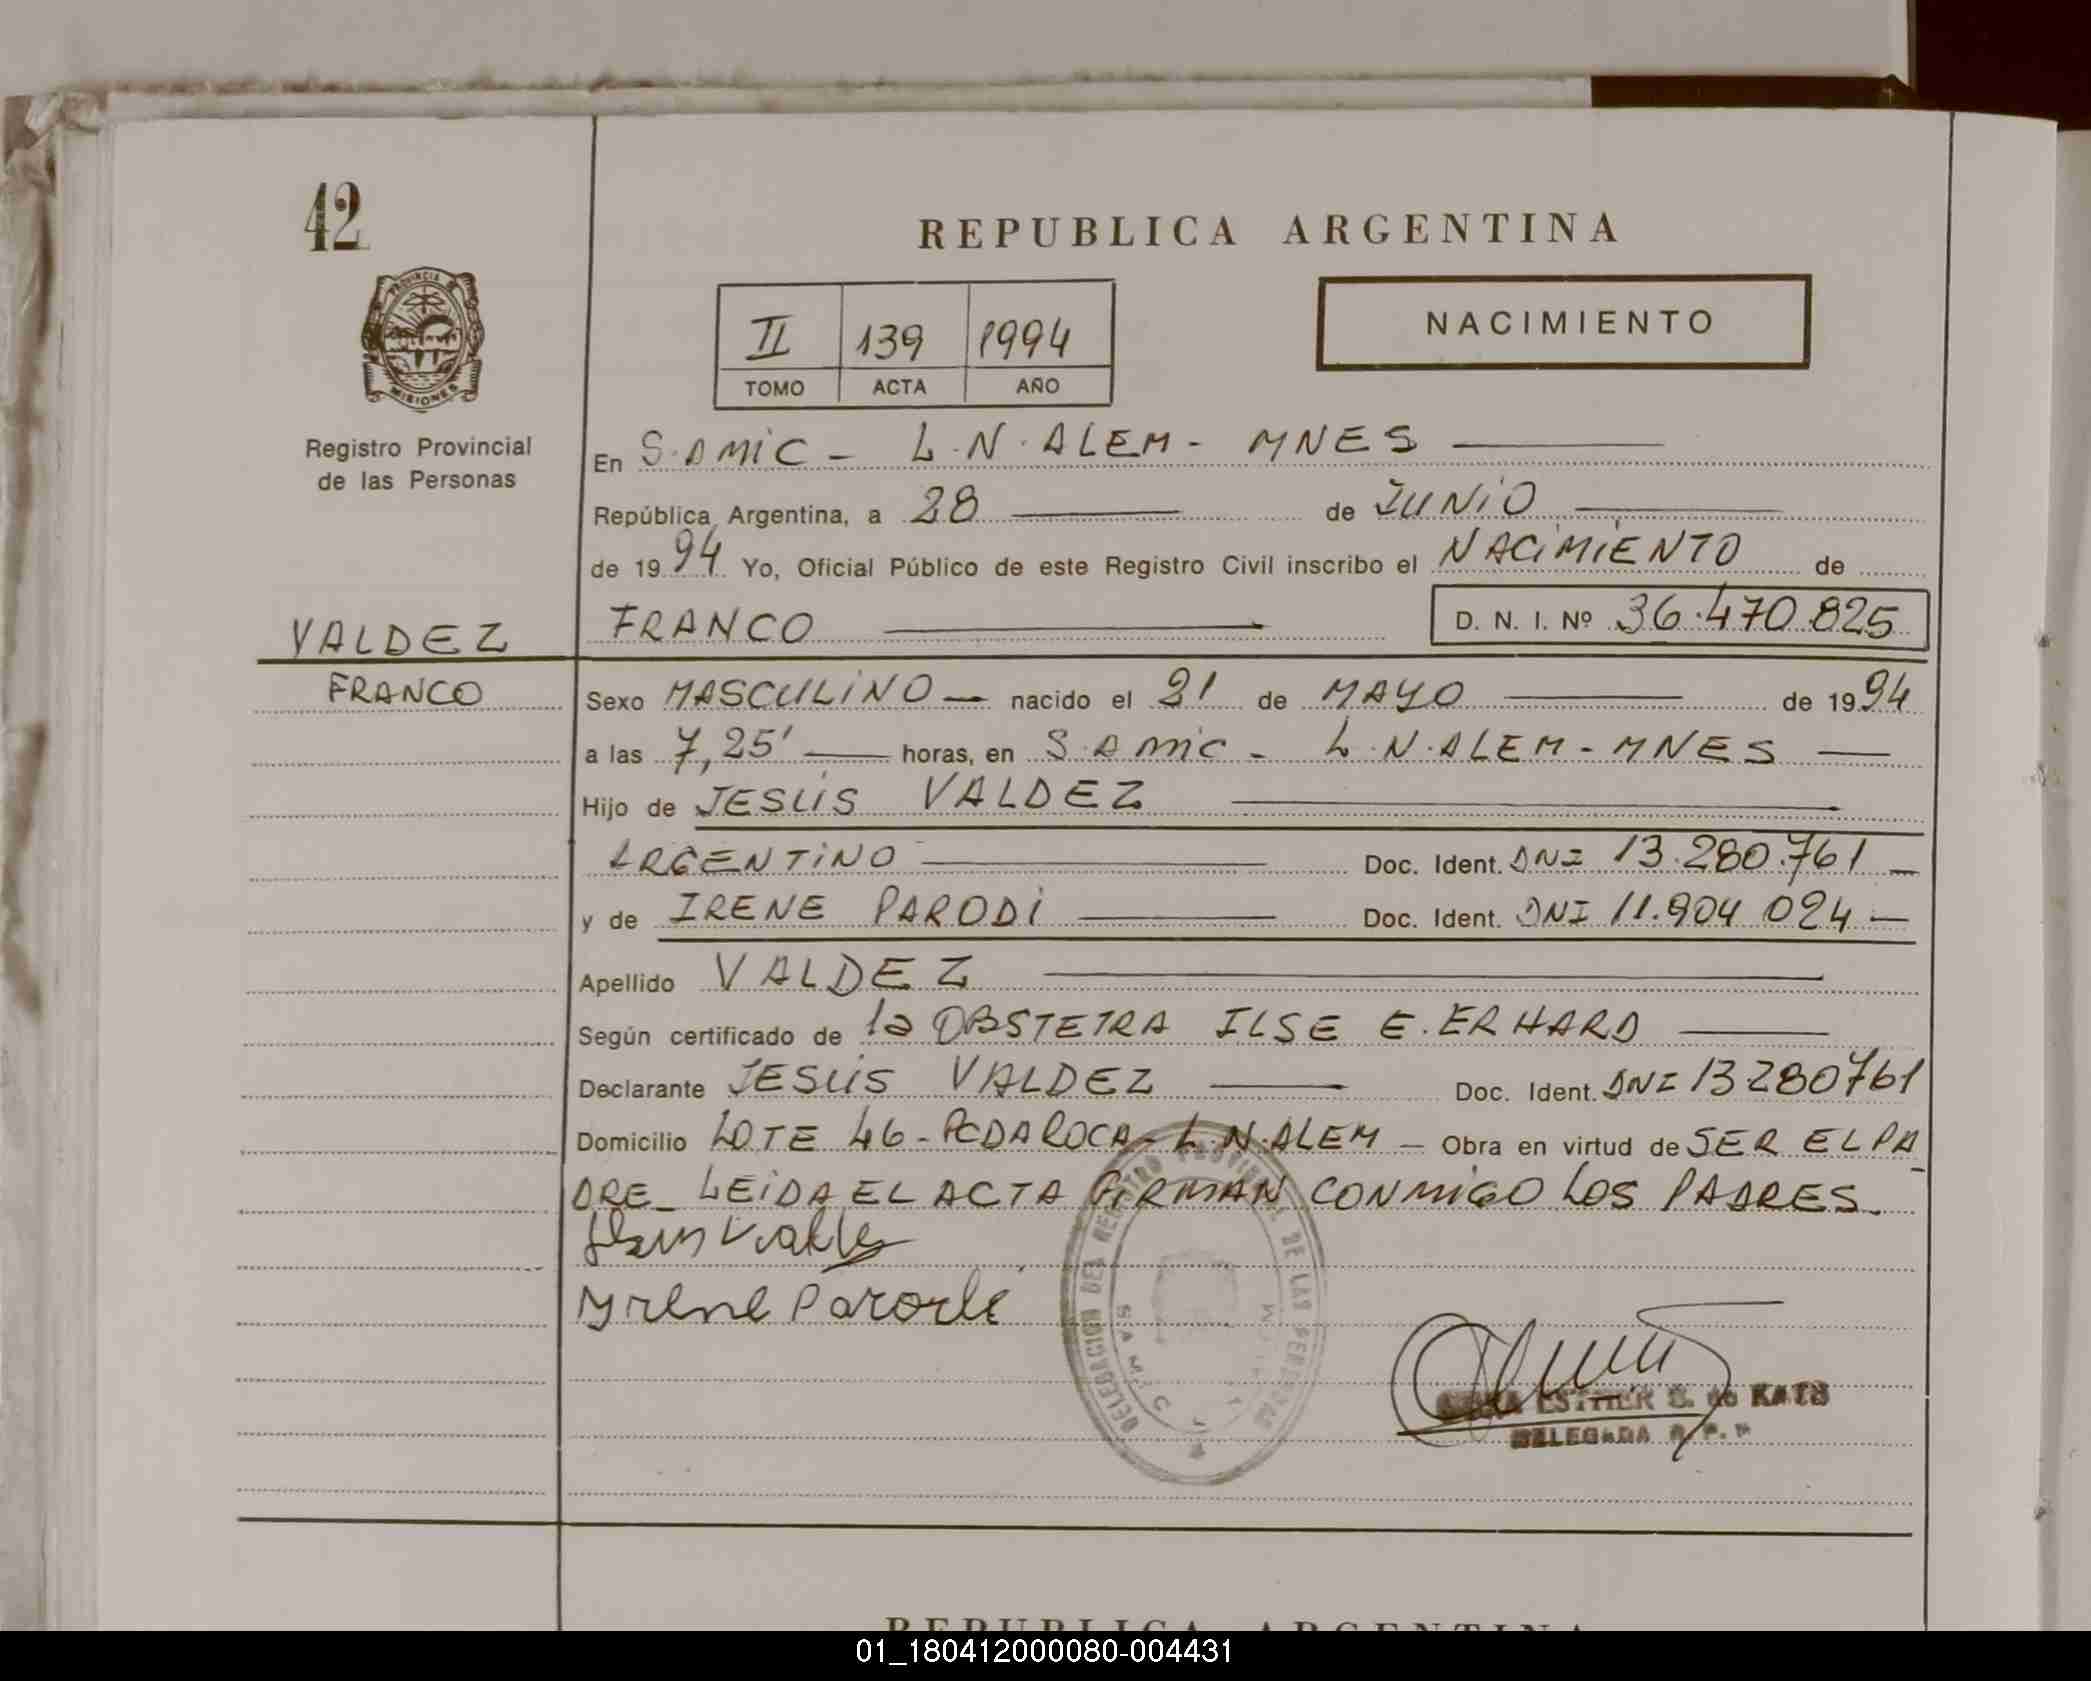 42
REPUBLICA ARGENTINA
PROVINCIA DE
MISIONES
II 139 1994
TOMO ACTA AÑO
NACIMIENTO
Registro Provincial
de las Personas
En S.AMIC - L.N.ALEM - MNES
República Argentina, a 28 de JUNIO
de 1994 Yo, Oficial Público de este Registro Civil inscribo el NACIMIENTO de
VALDEZ
FRANCO D. N. I. Nº 36.470.825
FRANCO
Sexo MASCULINO nacido el 21 de MAYO de 1994
a las 7,25' horas, en S.AMIC - L.N.ALEM - MNES
Hijo de JESÚS VALDEZ
ARGENTINO Doc. Ident. DNI 13.280.761
y de IRENE PARODI Doc. Ident. DNI 11.904.024
Apellido VALDEZ
Según certificado de la OBSTETRA ILSE E. ERHARD
Declarante JESÚS VALDEZ Doc. Ident. DNI 13280761
Domicilio LOTE 46 - PCDA ROCA - L.N.ALEM - Obra en virtud de SER EL PA
DRE_ LEIDA EL ACTA FIRMAN CONMIGO LOS PADRES.
Yrene Parodi
DELEGACION DEL REGISTRO PROVINCIAL DE LAS PERSONAS
ESTHER S. de
DELEGADA R. P. P
REPUBLICA ARGENTINA
01_180412000080-004431